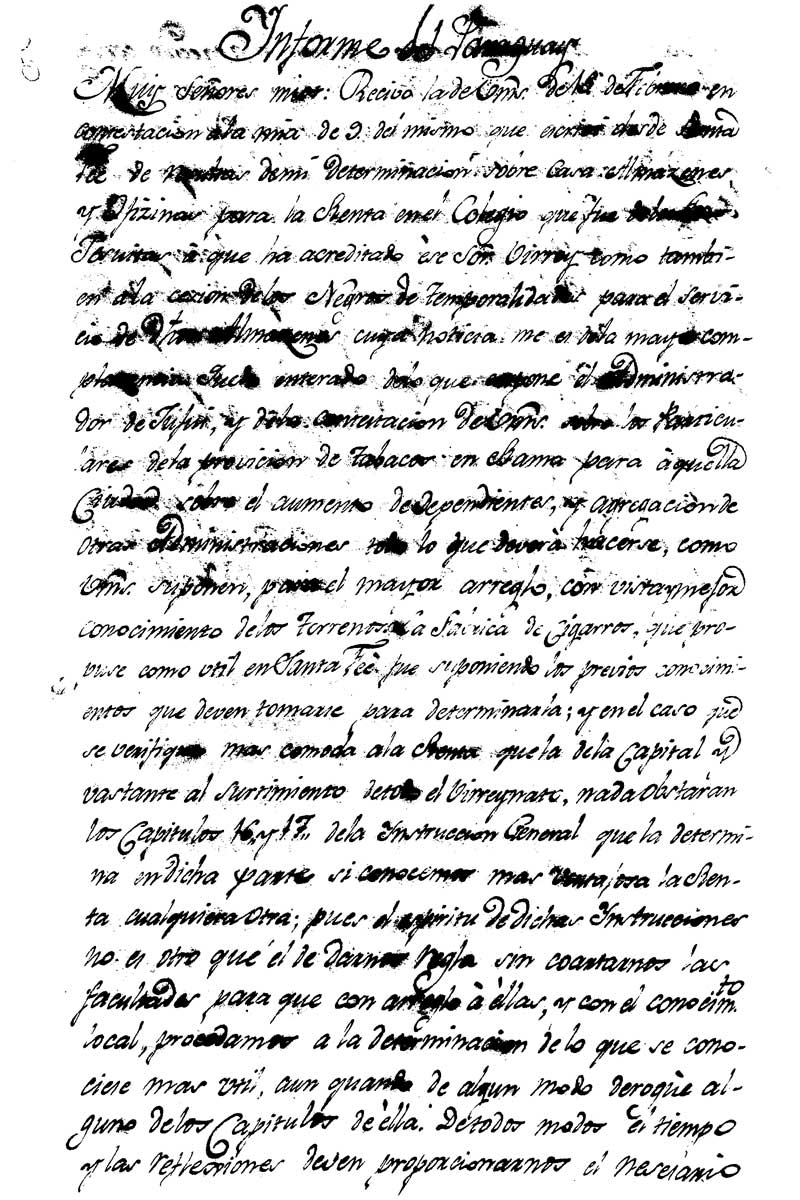 Informe del Paraguay
Muis Señores mios: Recivo la de Vms. de 16 de Febrero en
contestacion â la mia de 9. del mismo que escrivi desde Santa
Feè de demi Determinacion sobre Casa Almazenes,
y Ofizinas para la Renta en el Colegio que fue delos
Jesuitas â que ha acreditado ese Sor. Virrey como tambi-
en â la cezion delos Negros de Temporalidades para el servi-
cio de Dhos Almazenes cuya noticia me es dela mayor com-
plazencia Quedo enterado delo que expone él Administra-
dor de Jujui, y dela contextacion de Vms. sobre los particu-
lares dela provicion de Tabacos en Rama para âquella
Ciudad sobre el aumento de dependientes, y agregaciòn de
otras Administraciones todo lo que deverà hacerse, como
Vms. supònen, para el mayor arreglo, còn vista y mejor
conocimiento delos Terrenos. La Fabrica de Cigarros, què pro-
puse como vtil en Santa Feè fue suponiendo los previos conocimi-
entos que deven tomarse para determinarla; y en el caso que
se verifique mas comoda ala Renta que la dela Capital y
vastante al surtimiento detodo el Virreynato, nada obstaràn
los Capitulos 16, y 17,, dela Instruccion General que la determi-
na èn dicha parte si conocemos mas ventajosa la Ren-
ta cualquiera otra; pues el espiritu de dichas Instrucciones
no es otro què él de darnos regla sin coartarnos las
facultades para que con arreglo à èllas, y con el conocim.to
local, procedamos a la determinacion de lo que se cono-
ciese mas vtil, aun quando de algun modo derogùe al-
guno delos Capitulos de èlla. Detodos modos el tiempo
y las reflecsiones deven proporcionarnos el nesesario